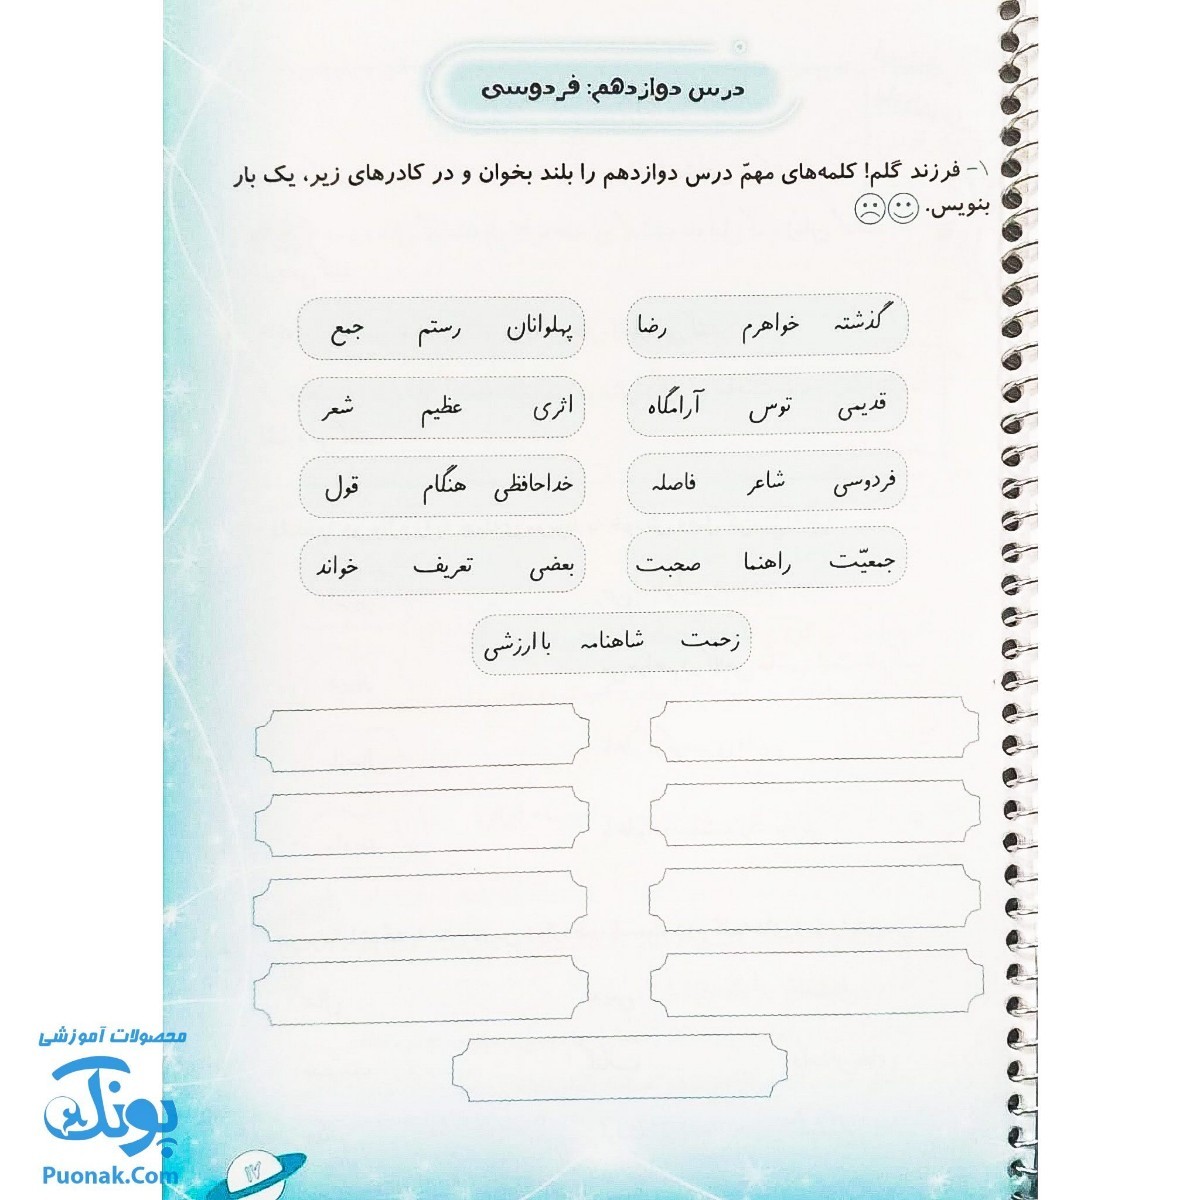 درس دوازدهم: فردوسی
۱- فرزند گلم! کلمه‌های مهمّ درس دوازدهم را بلند بخوان و در کادرهای زیر، یک بار
بنویس.
گذشته خواهرم رضا
پهلوانان رستم جمع
قدیمی توس آرامگاه
اثری عظیم شعر
فردوسی شاعر فاصله
خداحافظی هنگام قول
جمعیّت راهنما صحبت
بعضی تعریف خواند
زحمت شاهنامه باارزشی
محصولات آموزشی
پونک
Puonak.Com
۱۷